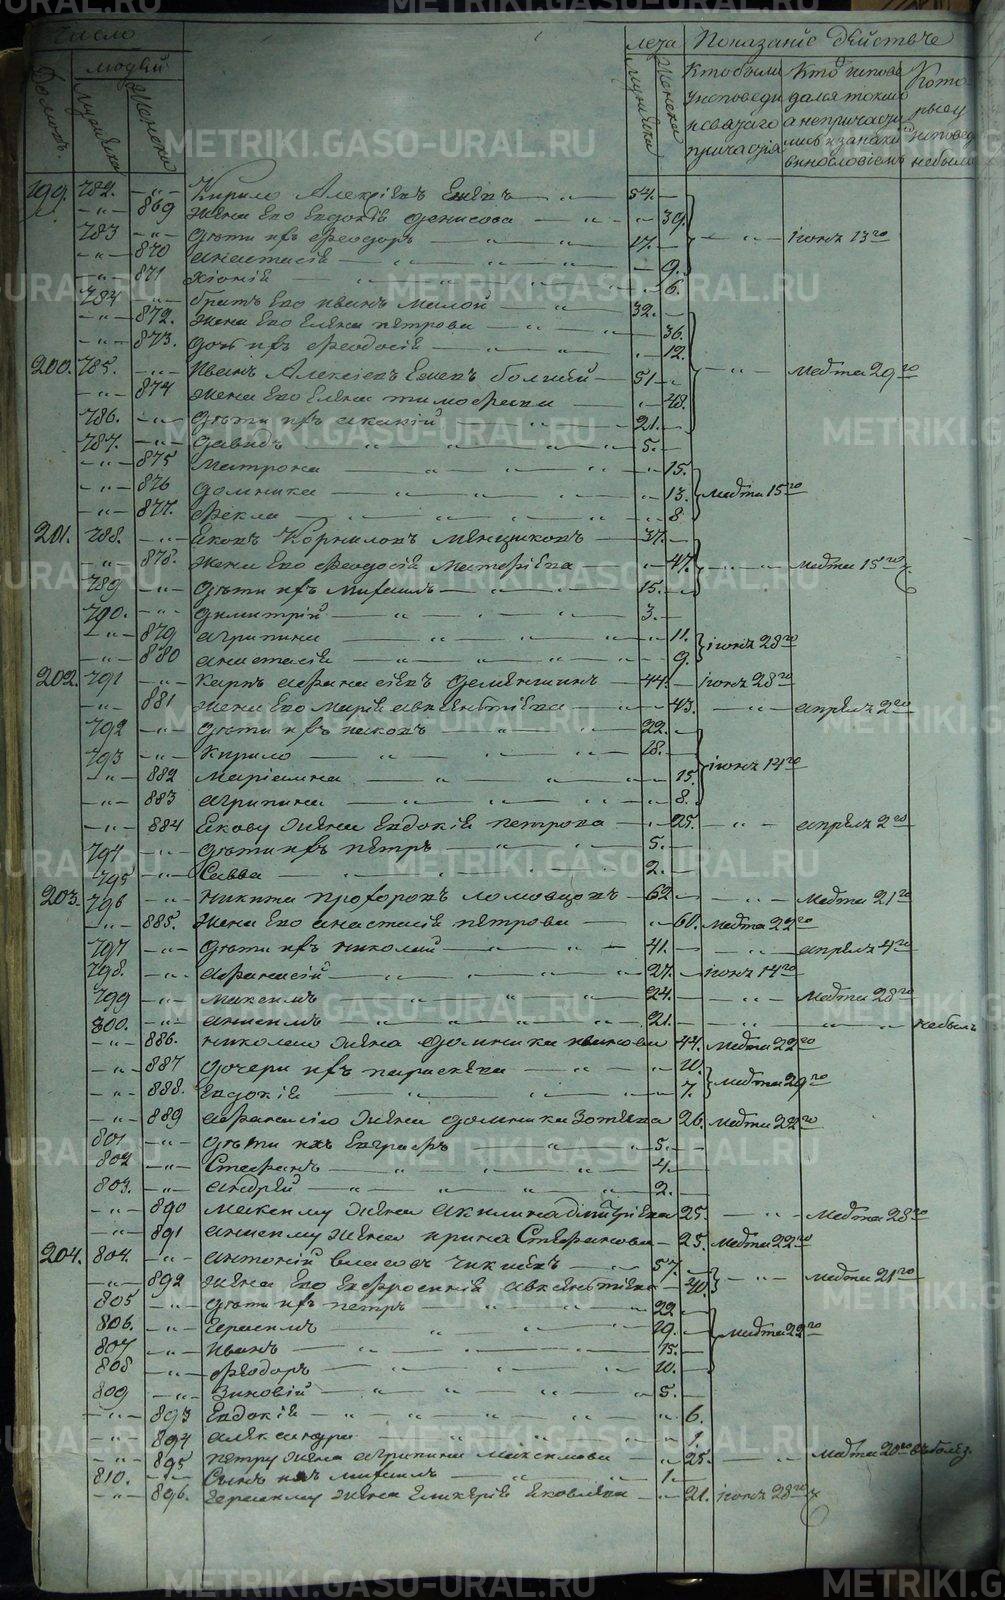 Число
лета
Показаніе дѣйствъ
Домовъ
людей
Мужеска
Женска
Мужеска
Женска
Кто были
у исповеди
и святаго
причастія
Кто испове
дался токмо
а не причасти
лись и за каки
ми
Кото
рые у
исповеди
не были
199. 782. -"- Кирило Алексѣевъ 54.
-"- 869 Жена Его Евдокія Денисова 39.
783 -"- Дѣти ихъ Феодоръ 17. іюня 13го
-"- 870 Анастасія 9.
-"- 871 Хіонія 6.
784 -"- братъ Его Иванъ Малой 32.
-"- 872. Жена Его Елена Петрова 36.
-"- 873. Дочь ихъ Феодосія 12.
200. 785. -"- Иванъ Алексѣевъ болшій 51 Марта 29го
-"- 874 Жена Его Елена Тимофеева 48.
786. -"- Дѣти ихъ Акакій 21.
787. -"- Давидъ 5.
-"- 875 Матрона 15.
-"- 876 Домника 13. Марта 15го
-"- 877. Фекла 8
201. 788. -"- Яковъ Корниловъ Меншиковъ 37.
-"- 878. Жена Его Феодосія Матфѣева 47. Марта 15го
789 -"- Дѣти ихъ Михаилъ 15.
790. -"- Димитрій 3.
-"- 879 Агрипина 11. іюня 28го
-"- 880 Анастасія 9.
202. 791 -"- Карпъ Афанасіевъ Деменшинъ 44. іюня 28го
-"- 881 Жена Его Марія Авксентіева 43. апреля 2го
792 -"- Дѣти ихъ Яковъ 22.
793 -"- Кирило 18. іюня 14го
-"- 882 Маріамна 15.
-"- 883 Агрипина 8.
-"- 884 Якову Жена Евдокія Петрова 25. апреля 2го
794 -"- Дѣти ихъ Петръ 5.
795 -"- Савва 2.
203. 796 -"- Никита Прохоровъ Ломовцовъ 62 Марта 21го
-"- 885. Жена Его Анастасія Петрова 60. Марта 22го
797 -"- Дѣти ихъ Николай 41. апреля 4го
798. -"- Афанасій 27. іюня 14го
799 -"- Максимъ 24. Марта 28го
800. -"- Анисимъ 21. небылъ
-"- 886. Николаю Жена Домника Иванова 44. Марта 22го
-"- 887 Дочери ихъ Параскева 10.
-"- 888. Евдокія 7. Марта 29го
-"- 889 Афанасію Жена Домника Зотѣева 26. Марта 22го
801 -"- Дѣти ихъ Евграфъ 5.
802 -"- Стефанъ 4.
803. -"- Андрей 2.
-"- 890 Максиму Жена Акилина Димитріева 25. Марта 28го
-"- 891 Анисиму Жена Ирина Стефанова 25. Марта 22го
204. 804. -"- Антоній Власовъ Чикаевъ 57. Марта 21го
-"- 892 Жена Его Евфросинія Авксентіева 40.
805 -"- Дѣти ихъ Петръ 22
806. -"- Герасимъ 19. Марта 22го
807 -"- Иванъ 15.
808 -"- Феодоръ 10.
809 -"- Зиновій 5.
-"- 893 Евдокія 6.
-"- 894 Александра 1.
-"- 895 Петру Жена Агрипина Максимова 25. Марта 20го
810. -"- Сынъ ихъ Михаилъ 1.
-"- 896. Герасиму Жена Гликерія Яковлева 21. іюня 28го
METRIKI.GASO-URAL.RU